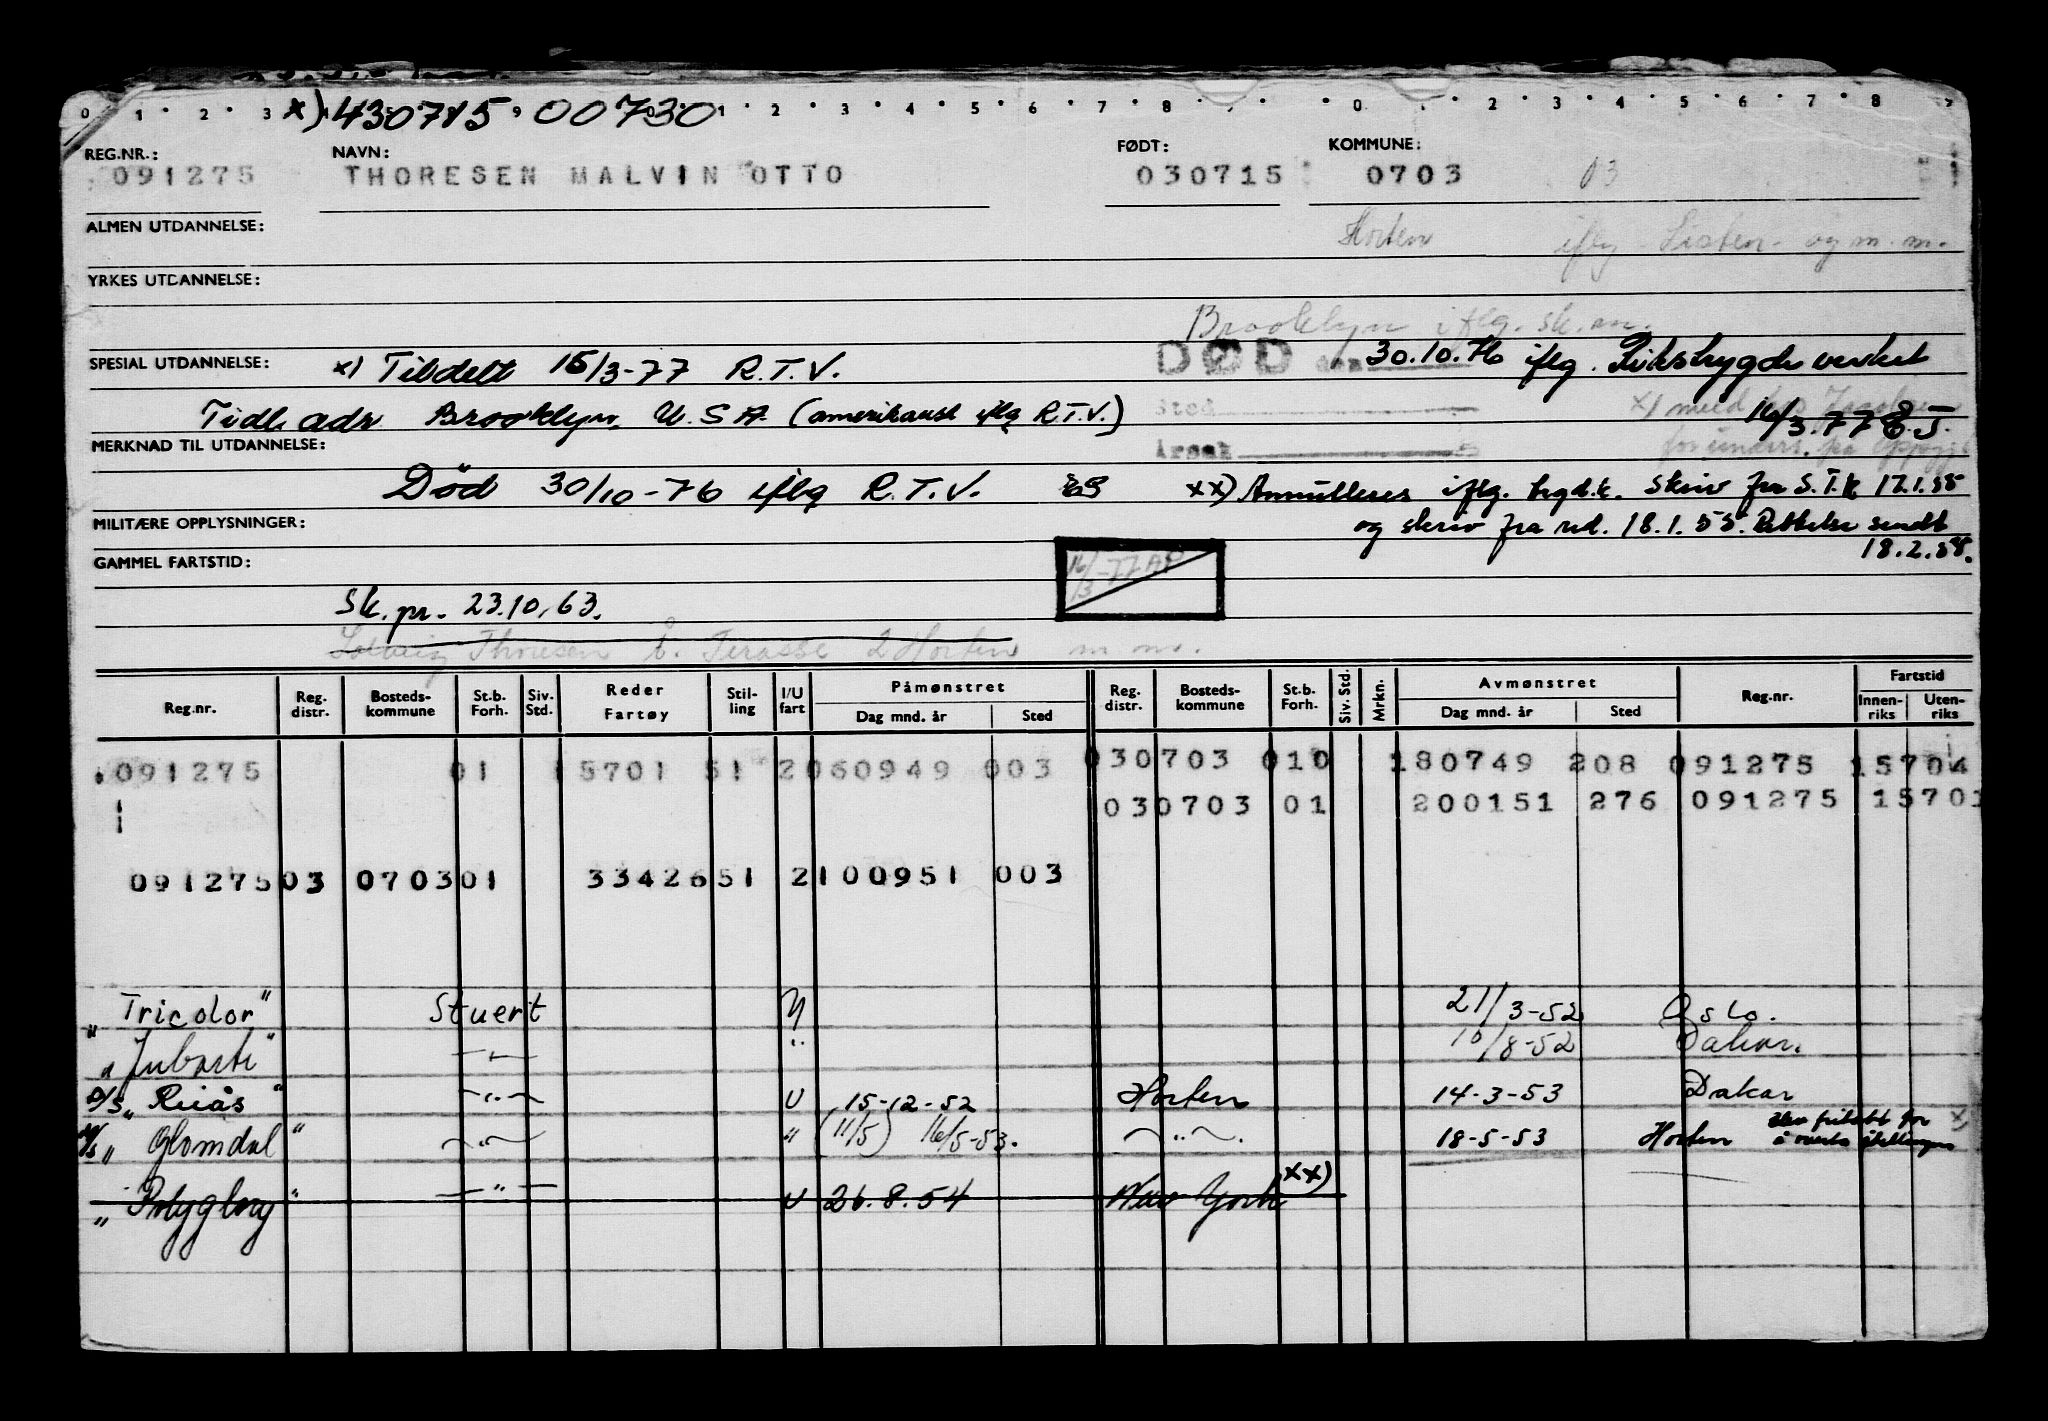 0 1 2 3 x) 430715 00730 1 2 3 4 5 6 7 8 0 2 3 4 5 6 7 8
REG.NR.: NAVN: FØDT: KOMMUNE:
091275 THORESEN MALVIN OTTO 030715 0703 03
ALMEN UTDANNELSE: Horten iflg. Listen og m.m.
YRKES UTDANNELSE:
Brooklyn iflg. sk.
SPESIAL UTDANNELSE: x) Tildelt 15/3-77 R.T.V. DØD den 30.10.76 iflg. Rikstrygdeverket
Tidl adr Brooklyn, U.S.A. (amerikansk iflg R.T.V.) Sted 16/3.77
MERKNAD TIL UTDANNELSE: Årsak
Død 30/10-76 iflg R.T.V. xx) Annulleres iflg. skriv fra S.T.K. 17.1.55
MILITÆRE OPPLYSNINGER: og skriv fra red. 18.1.55. Rettelse sendt
18.2.55.
GAMMEL FARTSTID: 16/3-77
Sk. pr. 23.10.63.
Solveig Thoresen Terasse 2 Horten m.m.
Reg.nr. Reg. distr. Bosteds-kommune St.b. Forh. Siv. Std. Reder Fartøy Stil-ling I/U fart Påmønstret Dag mnd. år Sted Reg. distr. Bosteds-kommune St.b. Forh. Siv. Std. Mrkn. Avmønstret Dag mnd. år Sted Reg.nr. Fartstid Innen-riks Uten-riks
091275 01 5701 51 2 060949 003 030703 010 180749 208 091275 15704
030703 01 200151 276 091275 15701
091275 03 0703 01 33426 51 2 100951 003
"Tricolor" Stuert 21/3-52 Oslo.
"Jubarte" -"- " 10/8-52 Dakar.
D/S "Risås" -"- U 15-12-52 Horten 14-3-53 Dakar
"Glomdal" -"- " (11/5) 16/5-53. -"-. 18-5-53 Horten
"Polyglory" -"- U 26.8.54 New York xx)